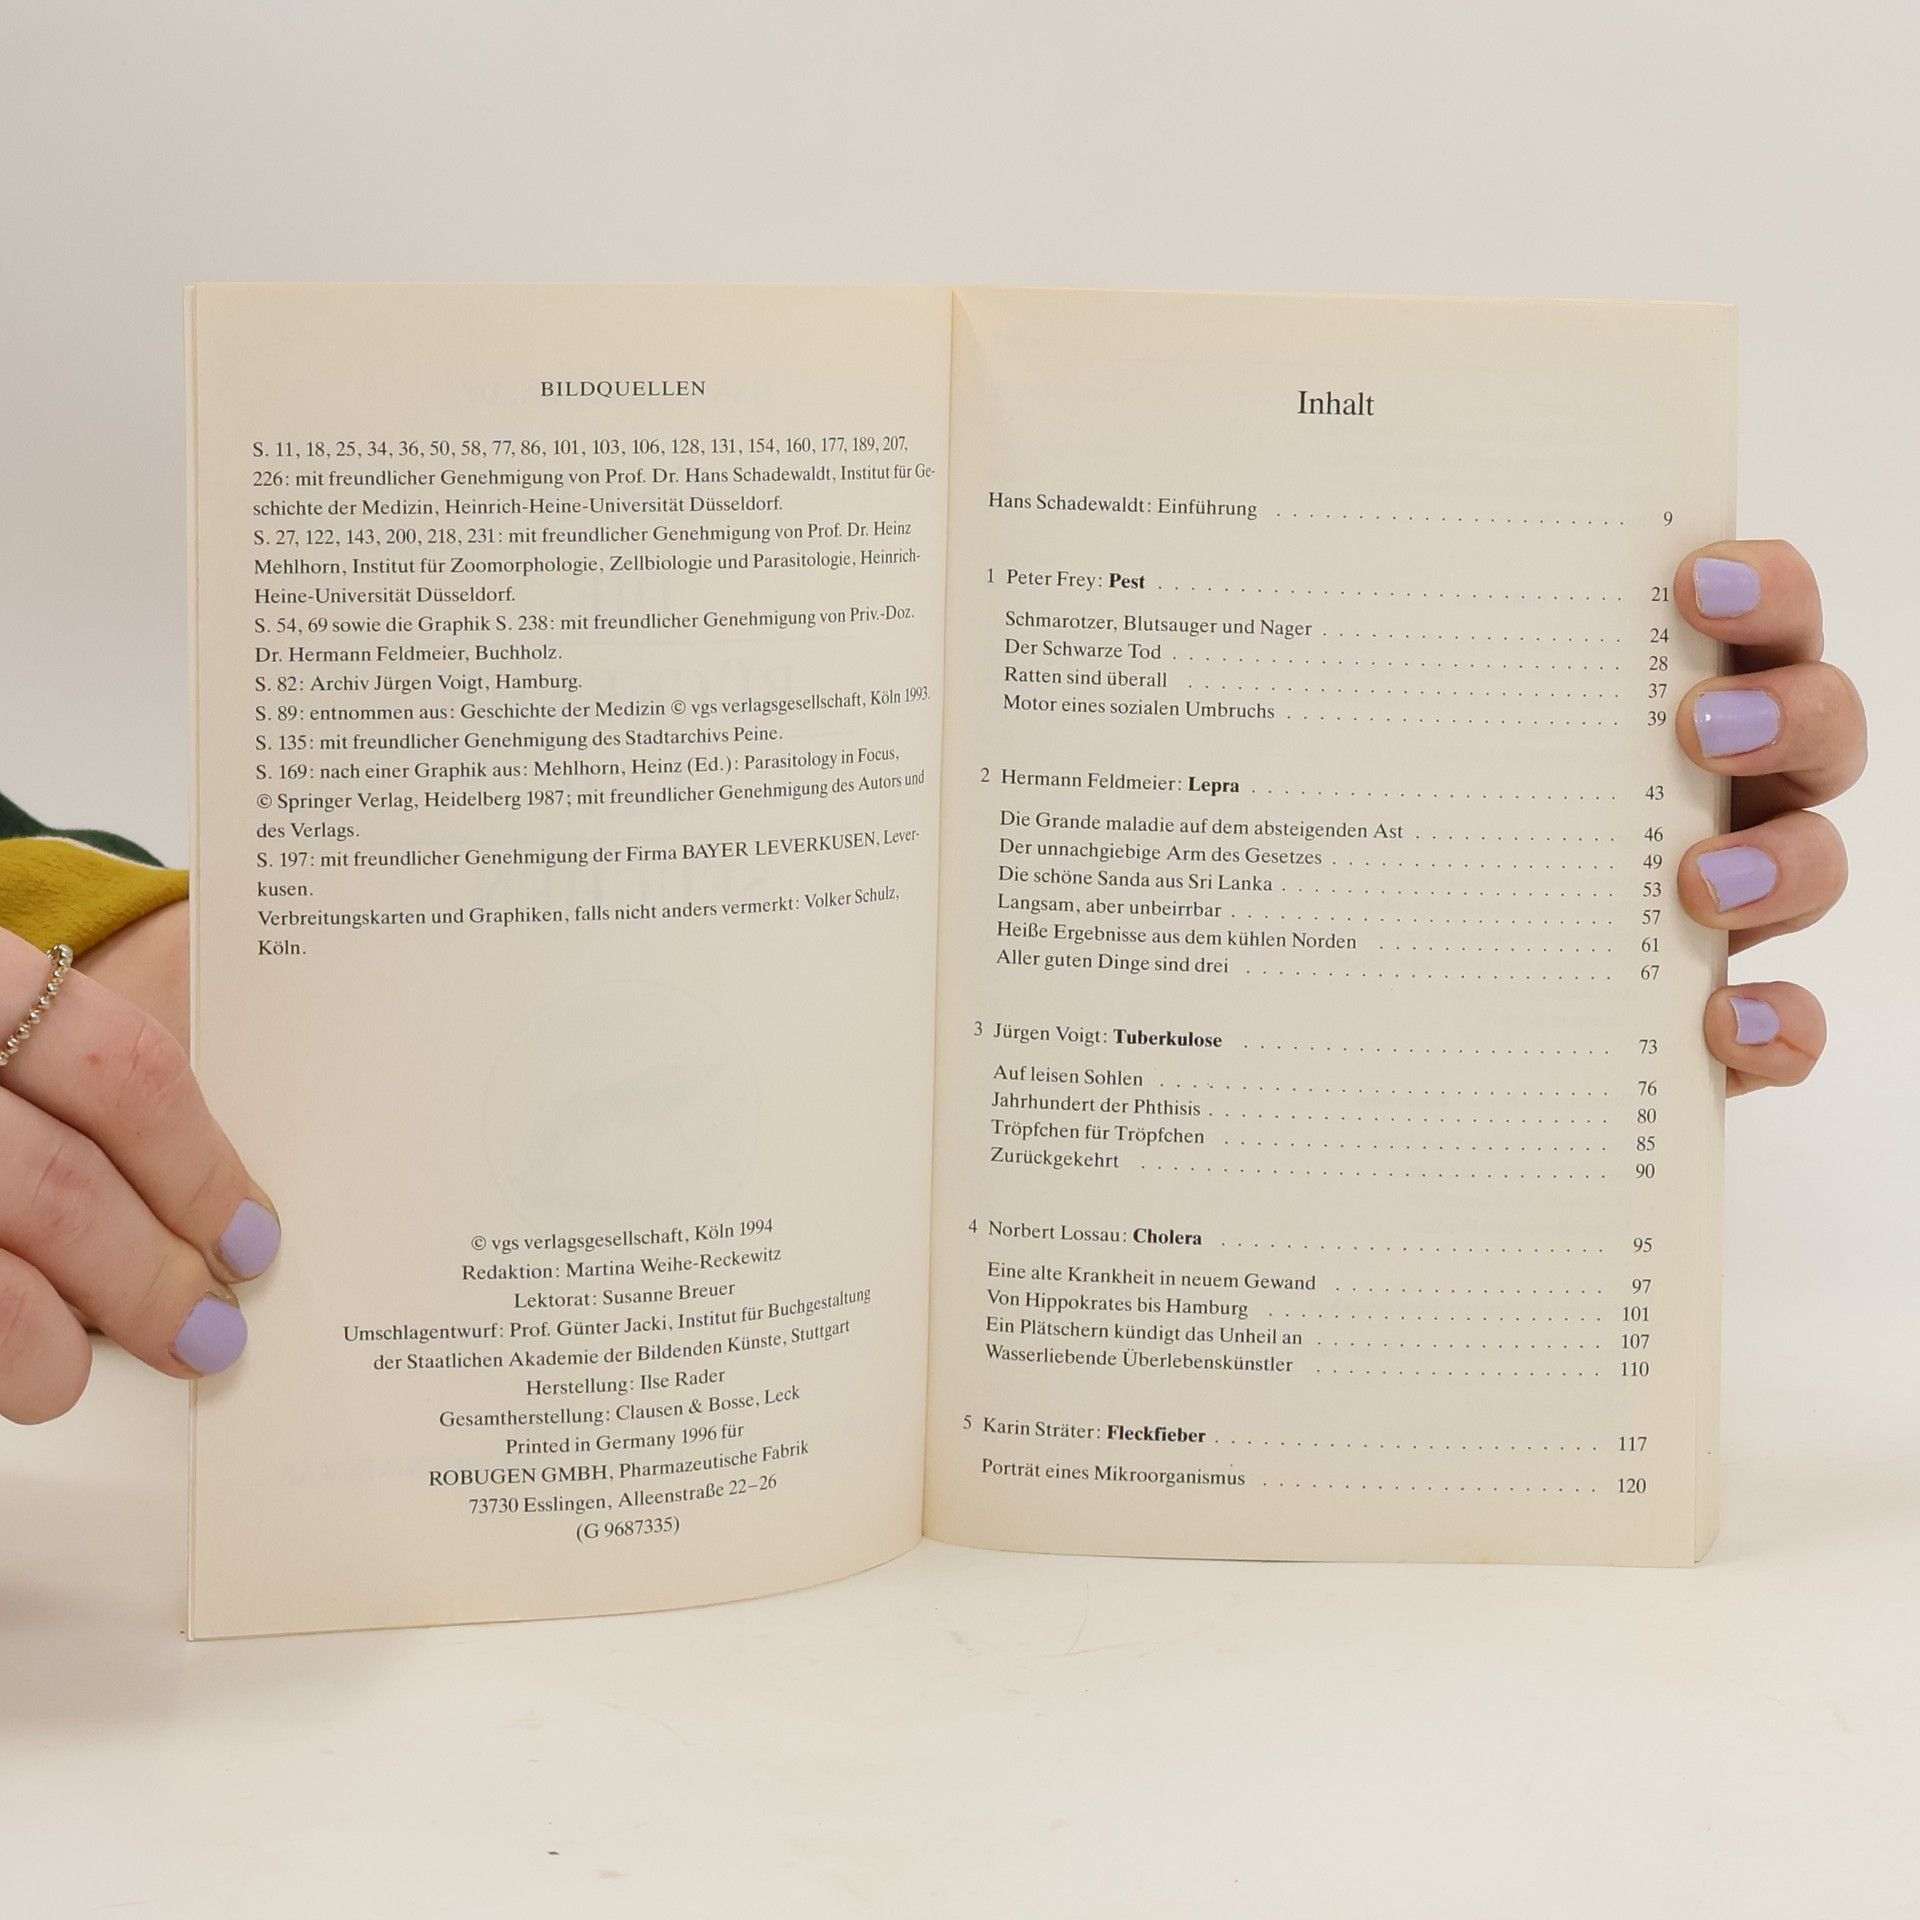 BILDQUELLEN
S. 11, 18, 25, 34, 36, 50, 58, 77, 86, 101, 103, 106, 128, 131, 154, 160, 177, 189, 207,
226: mit freundlicher Genehmigung von Prof. Dr. Hans Schadewaldt, Institut für Ge-
schichte der Medizin, Heinrich-Heine-Universität Düsseldorf.
S. 27, 122, 143, 200, 218, 231: mit freundlicher Genehmigung von Prof. Dr. Heinz
Mehlhorn, Institut für Zoomorphologie, Zellbiologie und Parasitologie, Heinrich-
Heine-Universität Düsseldorf.
S. 54, 69 sowie die Graphik S. 238: mit freundlicher Genehmigung von Priv.-Doz.
Dr. Hermann Feldmeier, Buchholz.
S. 82: Archiv Jürgen Voigt, Hamburg.
S. 89: entnommen aus: Geschichte der Medizin © vgs verlagsgesellschaft, Köln 1993.
S. 135: mit freundlicher Genehmigung des Stadtarchivs Peine.
S. 169: nach einer Graphik aus: Mehlhorn, Heinz (Ed.): Parasitology in Focus,
© Springer Verlag, Heidelberg 1987; mit freundlicher Genehmigung des Autors und
des Verlags.
S. 197: mit freundlicher Genehmigung der Firma BAYER LEVERKUSEN, Lever-
kusen.
Verbreitungskarten und Graphiken, falls nicht anders vermerkt: Volker Schulz,
Köln.
© vgs verlagsgesellschaft, Köln 1994
Redaktion: Martina Weihe-Reckewitz
Lektorat: Susanne Breuer
Umschlagentwurf: Prof. Günter Jacki, Institut für Buchgestaltung
der Staatlichen Akademie der Bildenden Künste, Stuttgart
Herstellung: Ilse Rader
Gesamtherstellung: Clausen & Bosse, Leck
Printed in Germany 1996 für
ROBUGEN GMBH, Pharmazeutische Fabrik
73730 Esslingen, Alleenstraße 22–26
(G 9687335)
Inhalt
Hans Schadewaldt: Einführung . . . . . . . . . . . . . . . . . . . . . . 9
1 Peter Frey: Pest . . . . . . . . . . . . . . . . . . . . . . . . . . . . 21
Schmarotzer, Blutsauger und Nager . . . . . . . . . . . . . . . . . . 24
Der Schwarze Tod . . . . . . . . . . . . . . . . . . . . . . . . . . . . 28
Ratten sind überall . . . . . . . . . . . . . . . . . . . . . . . . . . . 37
Motor eines sozialen Umbruchs . . . . . . . . . . . . . . . . . . . . 39
2 Hermann Feldmeier: Lepra . . . . . . . . . . . . . . . . . . . . . . 43
Die Grande maladie auf dem absteigenden Ast . . . . . . . . . . . . 46
Der unnachgiebige Arm des Gesetzes . . . . . . . . . . . . . . . . . 49
Die schöne Sanda aus Sri Lanka . . . . . . . . . . . . . . . . . . . . 53
Langsam, aber unbeirrbar . . . . . . . . . . . . . . . . . . . . . . . 57
Heiße Ergebnisse aus dem kühlen Norden . . . . . . . . . . . . . . 61
Aller guten Dinge sind drei . . . . . . . . . . . . . . . . . . . . . . 67
3 Jürgen Voigt: Tuberkulose . . . . . . . . . . . . . . . . . . . . . . 73
Auf leisen Sohlen . . . . . . . . . . . . . . . . . . . . . . . . . . . . 76
Jahrhundert der Phthisis . . . . . . . . . . . . . . . . . . . . . . . . 80
Tröpfchen für Tröpfchen . . . . . . . . . . . . . . . . . . . . . . . . 85
Zurückgekehrt . . . . . . . . . . . . . . . . . . . . . . . . . . . . . . 90
4 Norbert Lossau: Cholera . . . . . . . . . . . . . . . . . . . . . . . 95
Eine alte Krankheit in neuem Gewand . . . . . . . . . . . . . . . . 97
Von Hippokrates bis Hamburg . . . . . . . . . . . . . . . . . . . . . 101
Ein Plätschern kündigt das Unheil an . . . . . . . . . . . . . . . . . 107
Wasserliebende Überlebenskünstler . . . . . . . . . . . . . . . . . . 110
5 Karin Sträter: Fleckfieber . . . . . . . . . . . . . . . . . . . . . . 117
Porträt eines Mikroorganismus . . . . . . . . . . . . . . . . . . . . . 120